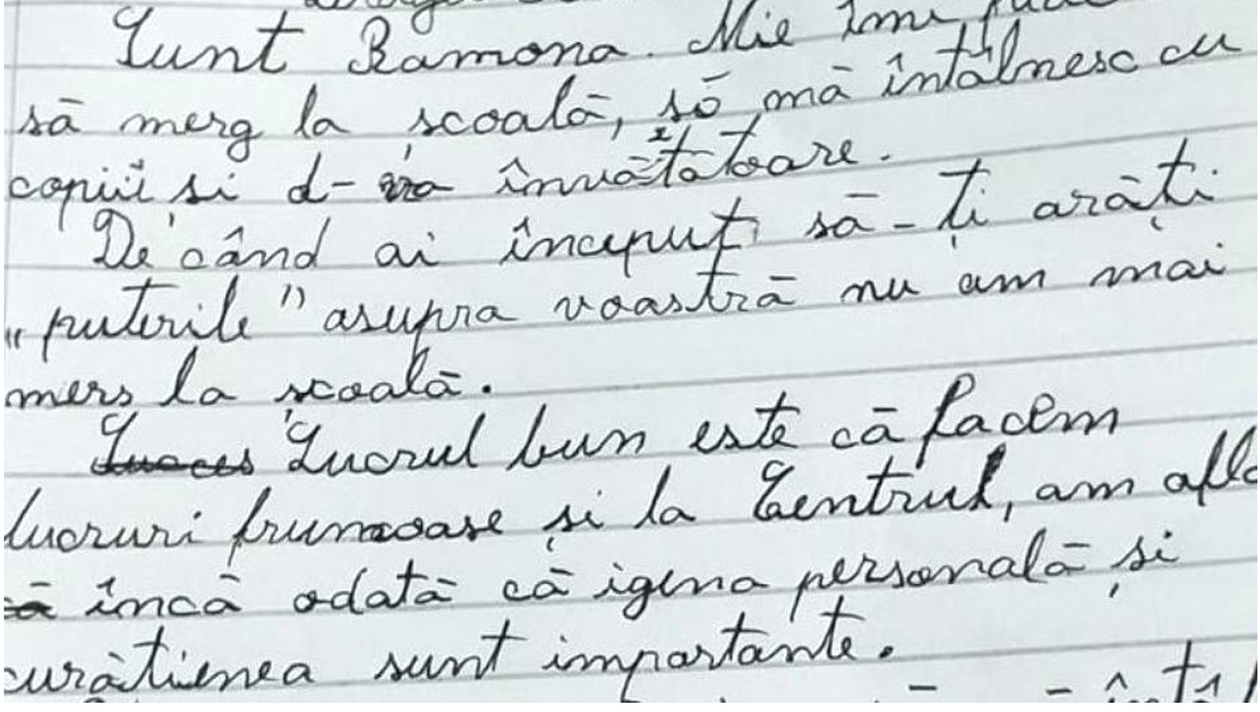 Sunt Ramona. Mie îmi
să merg la școală, să mă întâlnesc cu
copiii si d-ra învățătoare.
De când ai început să-ți arăți
„puterile" asupra voastră nu am mai
mers la școală.
Lucrul bun este că facem
lucruri frumoase și la Centrul, am
încă odată că igena personală și
curățienea sunt importante.